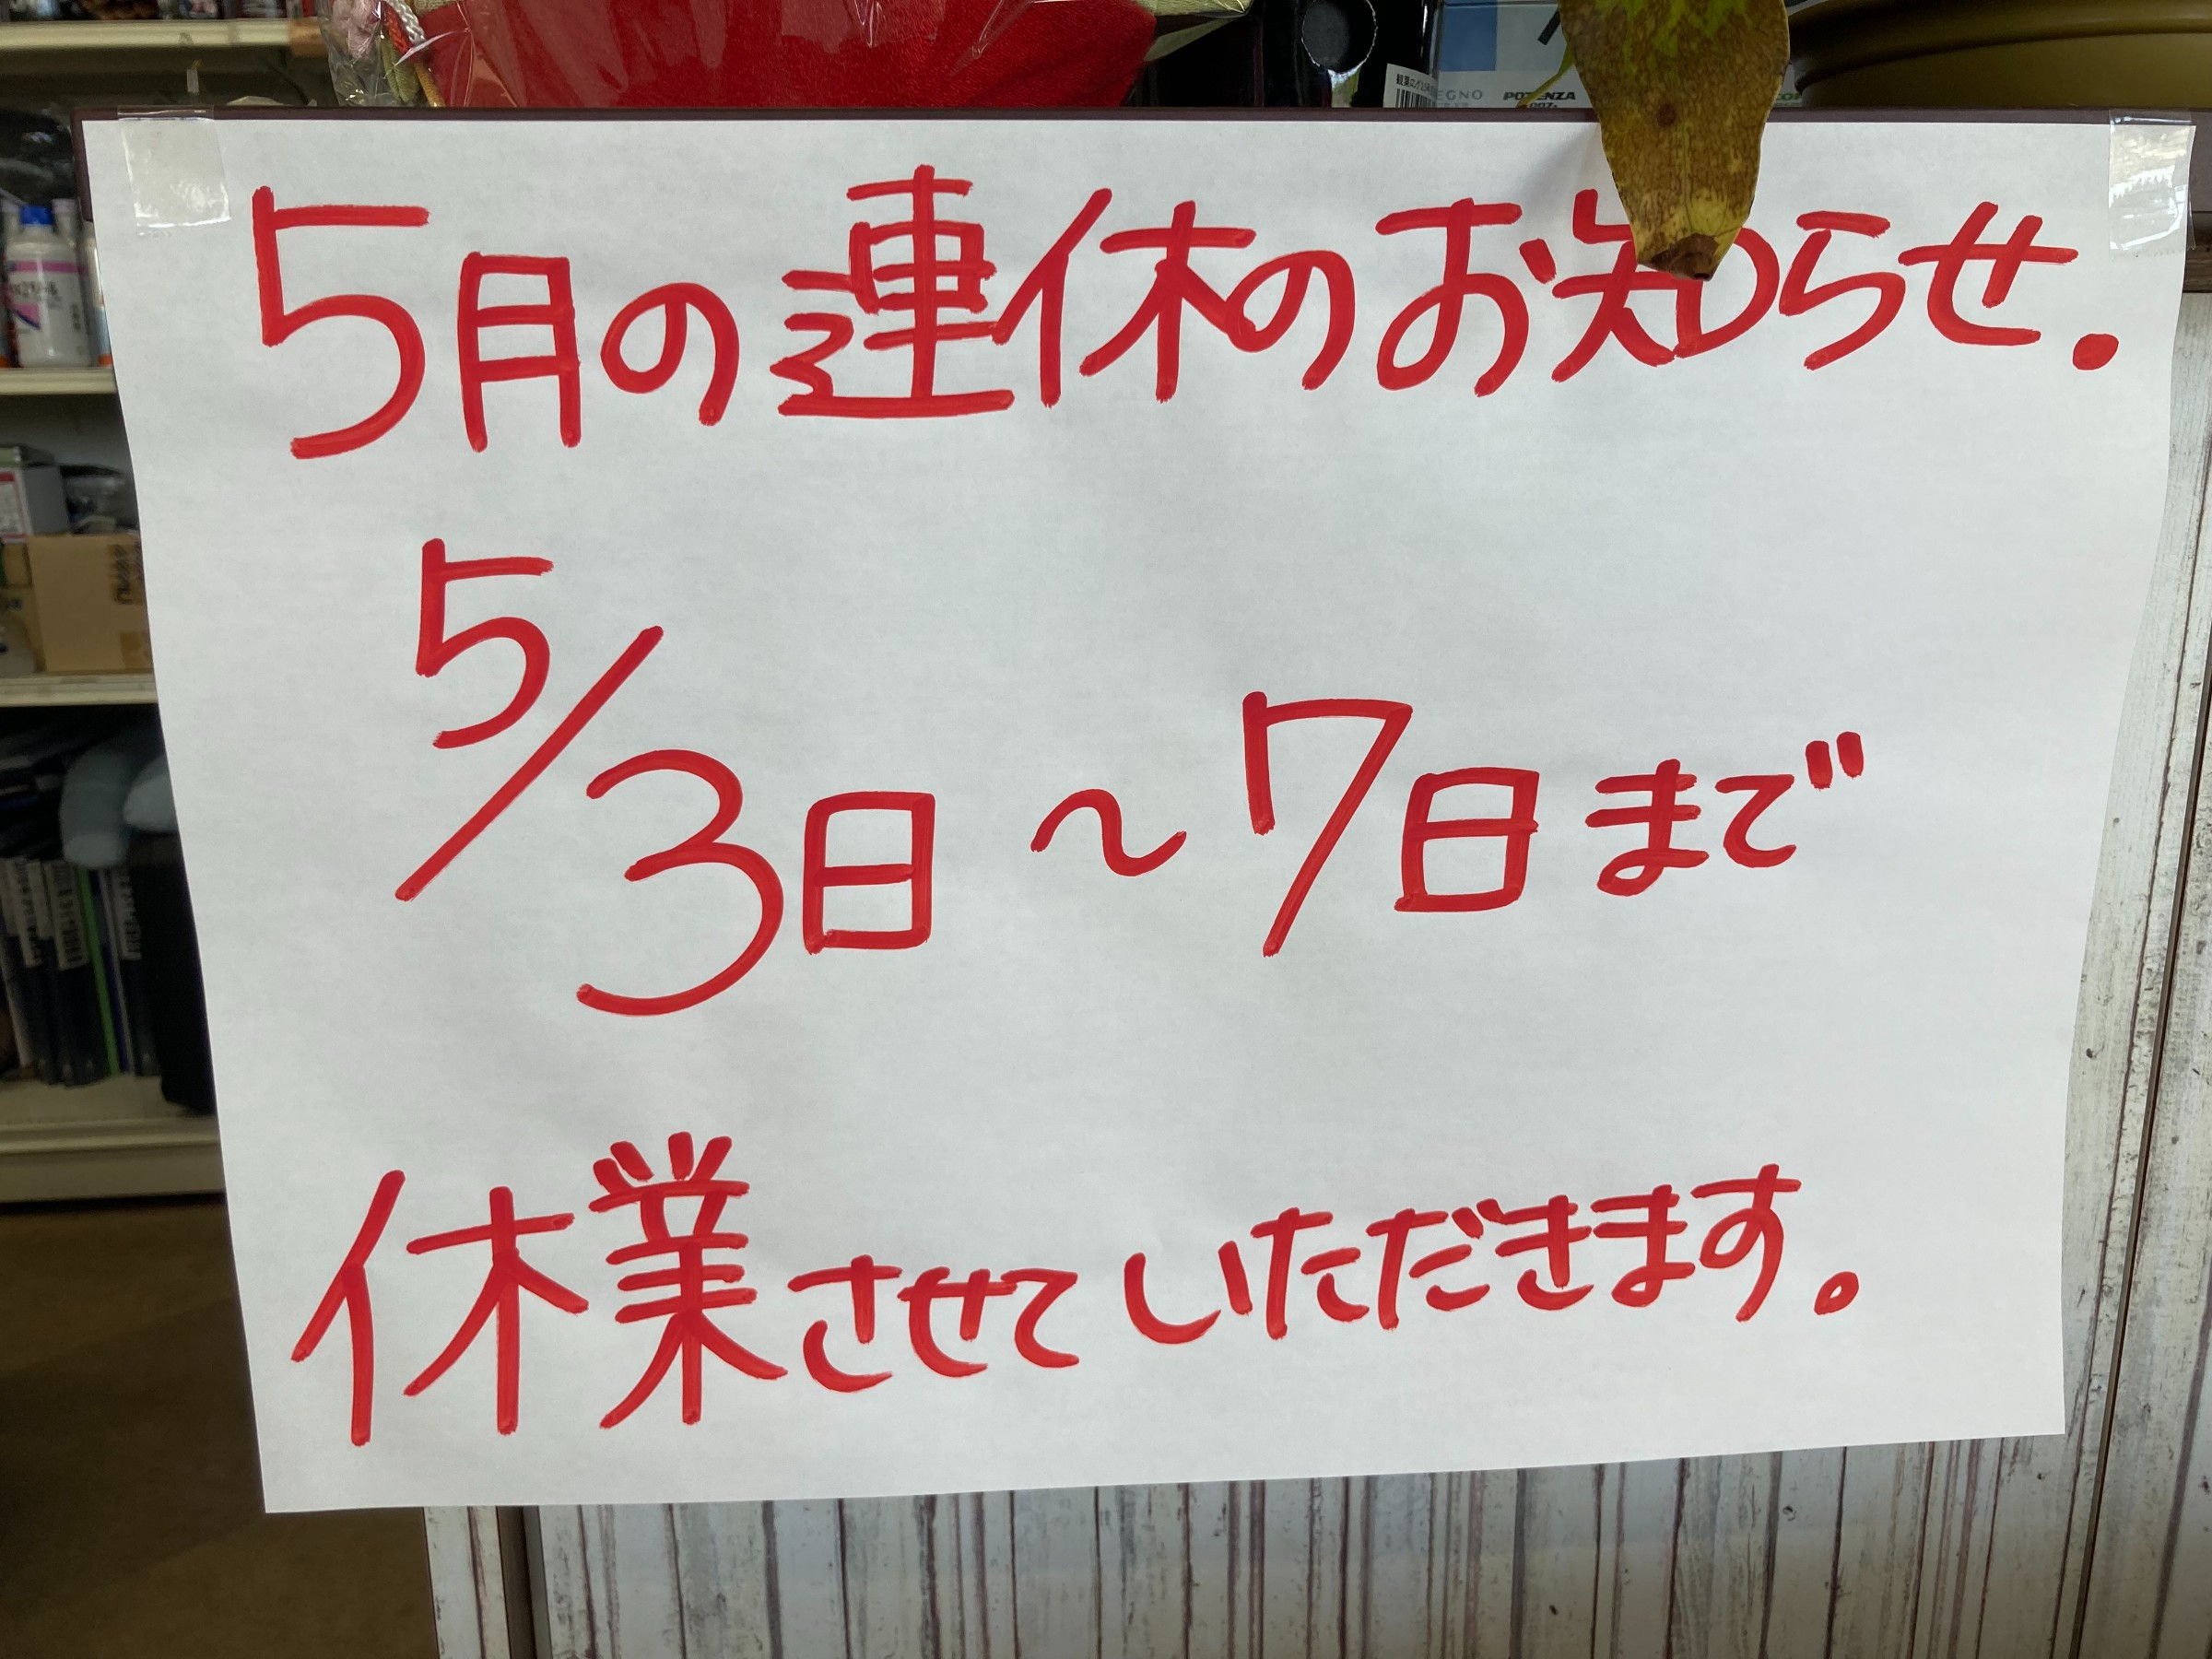 EGNO POTENZA
5月の連休のお知らせ.
5/3日 ～ 7日まで
休業させていただきます。